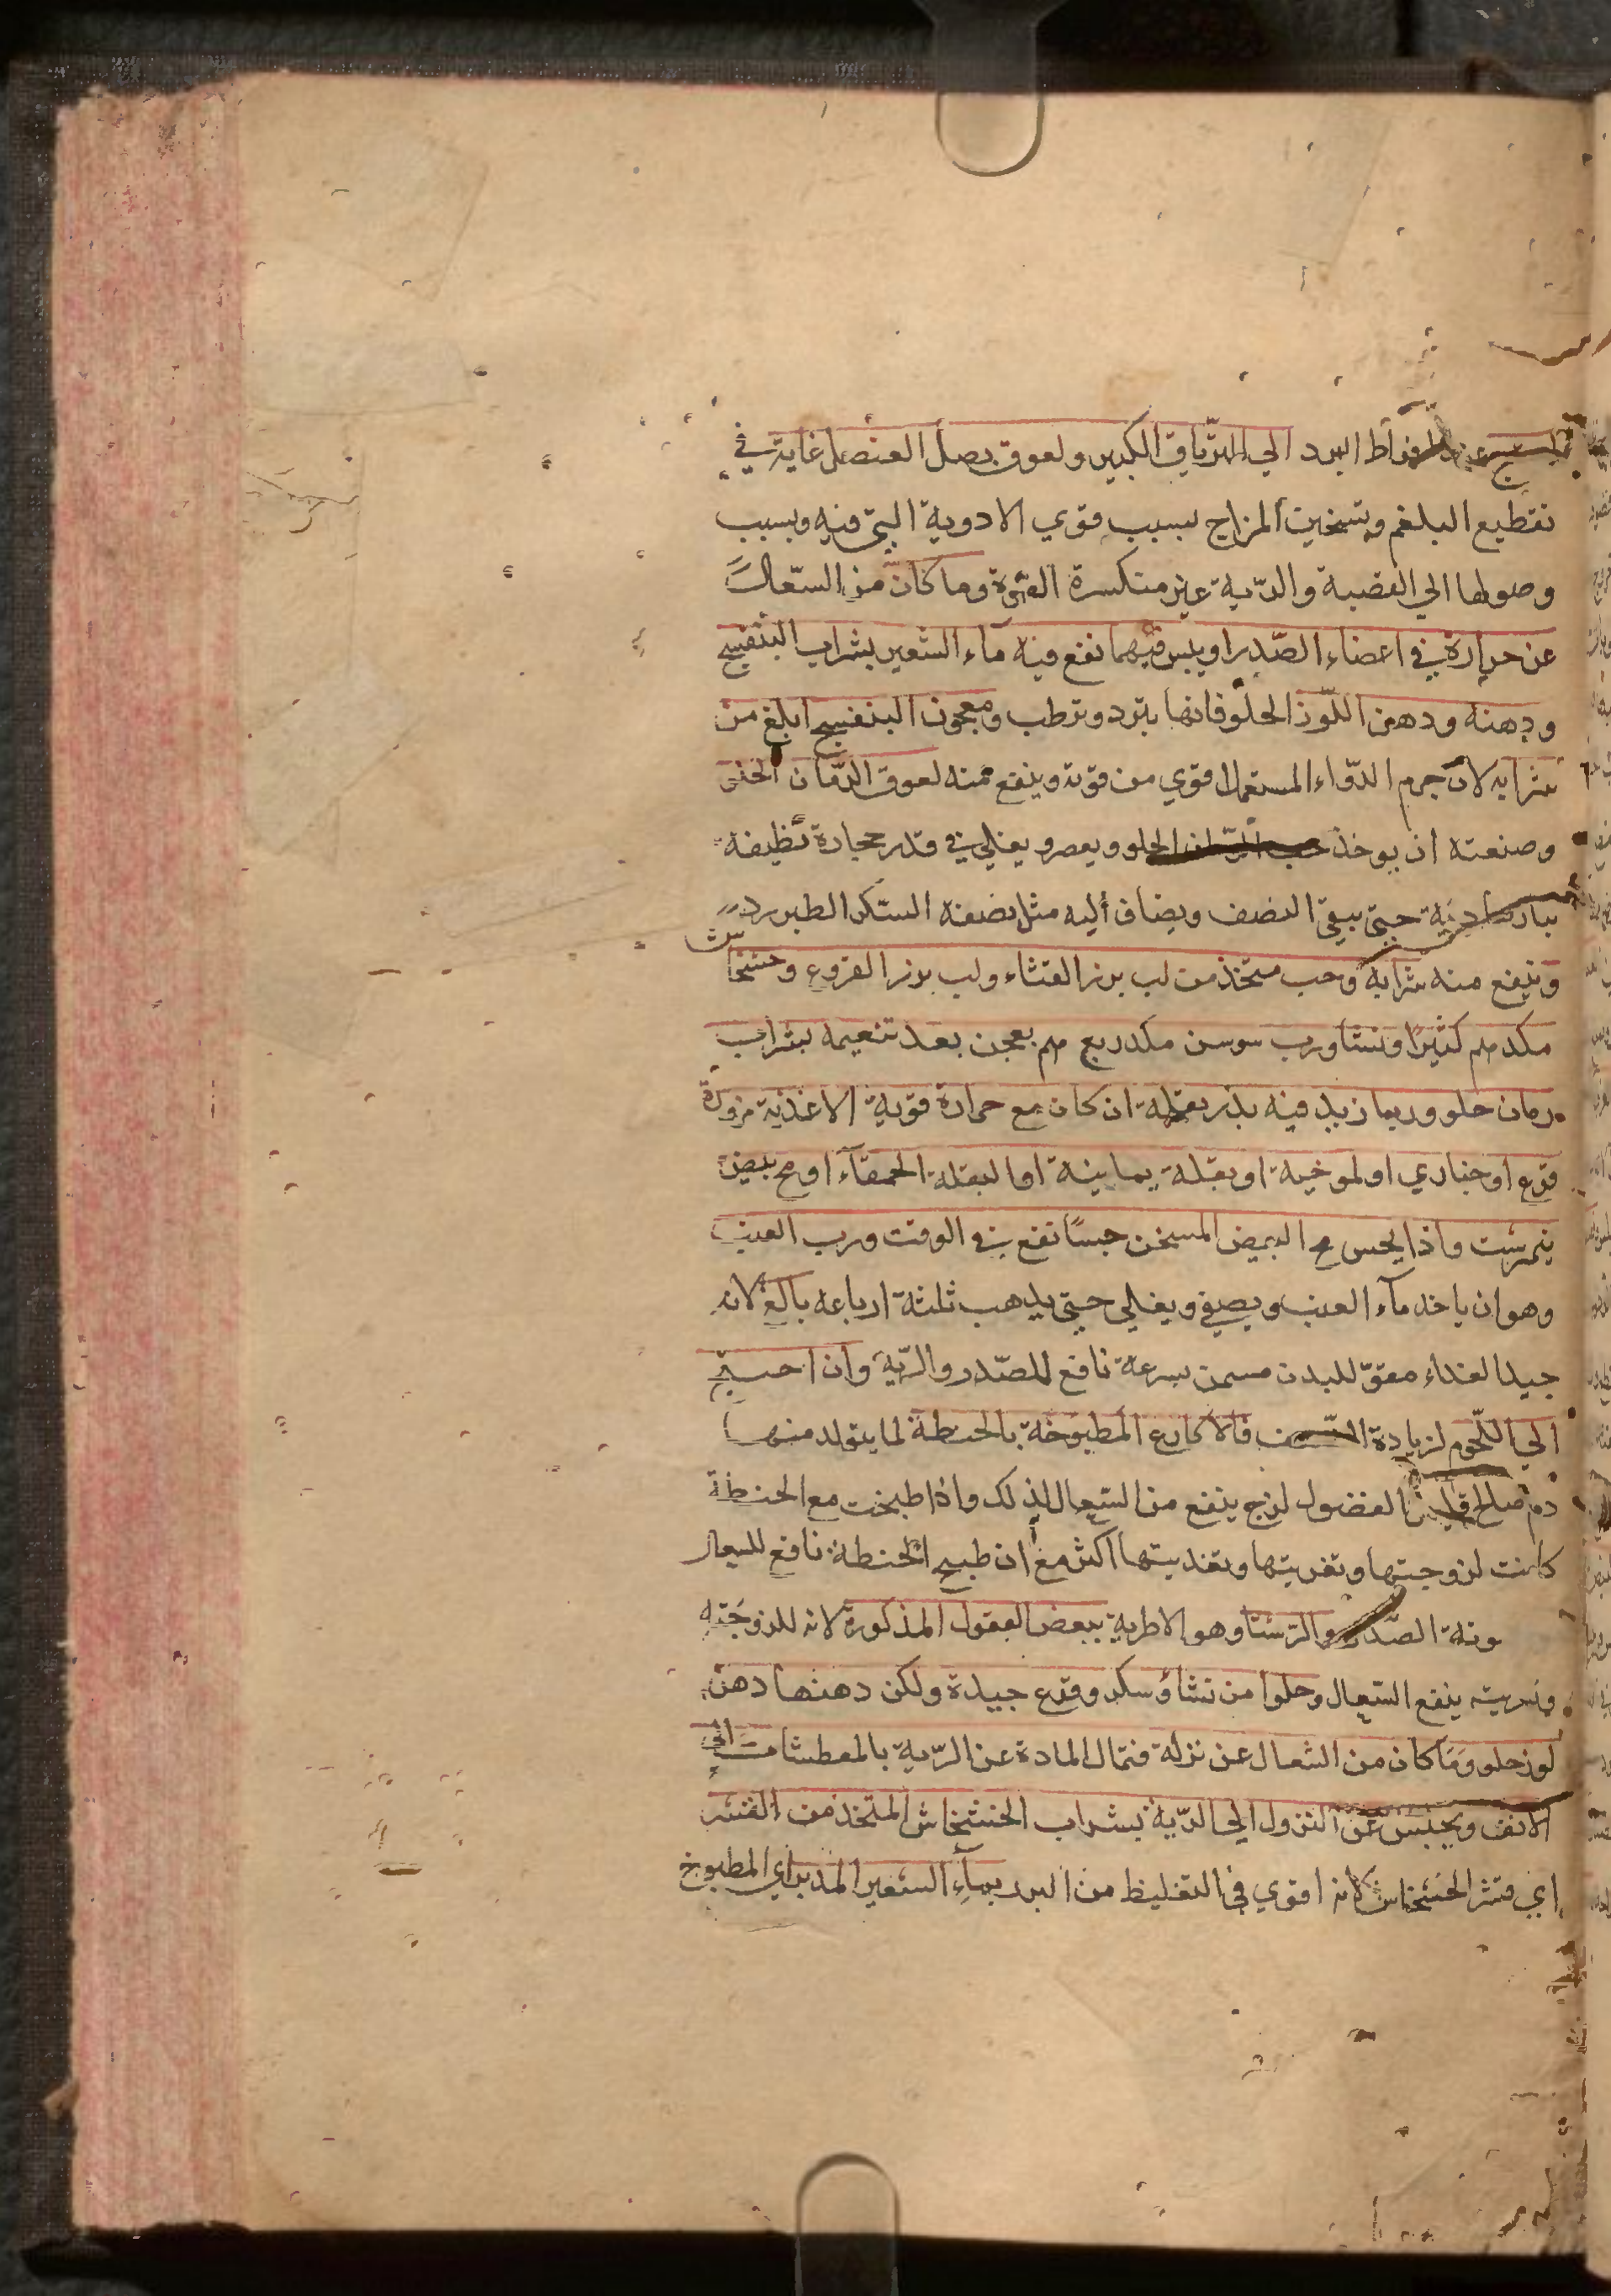 افراط البرد الي الترياق الكبير ولعوق بصل العنصل غاية في
تقطيع البلغم وتسخين المزاج بسبب قوي الادوية التي فيه وبسبب
وصولها الي القصبة والرية غير منكسرة القوة وما كان من السعال
عن حرارة في اعضاء الصدر او يبس فيهما نفع فيه ماء الشعير بشراب البنفسج
ودهنه ودهن اللوز الحلو فانها يبرد وترطب ومعجون البنفسج ابلغ من
شرابه لان جرم الدواء المستعمل اقوي من قوته وينفع منه لعوق الرمان
وصنعته ان يوخذ حب الرمان الحلو ويعصر ويغلي في قدر حجارة نظيفة
بنار حتي يبقي النصف ويضاف أليه مثل نصفه السكر الطبرزد
وينفع منه شرابه وحب متخذ من لب بزر القثاء ولب بزر القرع وخشخاش
مكد كثيرا ونشا ورب سوسن مكد ربع يعجن بعد تنعيمه بشراب
رمان حلو وربما زيد فيه بذر بقلة ان كان مع حرارة قوية الاغذية مزورة
قرع او خبازي او لموخية او بقلة يمانية او البقلة الحمقآء او مح بيض
نيمرشت واذا يحس مح البيض المسخن حسًا نفع في الوقت ورب العنب
وهو ان ياخذ مآء العنب ويصفي ويغلي حتي يذهب ثلثة ارباعه بالغ لانه
جيد الغذاء مقوّ للبدن مسمن بسرعة نافع للصّدر والرّية وان احتيج
الي اللحوم لزيادة فالاكارع المطبوخة بالحنطة لما يتولد منها
دم صالح قليل الفضول لزج ينفع من السعال لذلك واذا طبخت مع الحنطة
كانت لزوجتها وتغريتها وتغذيتها اكثر مع ان طبيح الحنطة نافع للسعال
ونة الصّدر والرشتا وهو الاطرية ببعض البقول المذكورة لانه للزوجته
وتغريته ينفع السّعال وحلوا من نشا وسكر وقرع جيدة ولكن دهنها دهن
لوز حلو وَمَا كان من السعال عن نزلة فتمال المادة عن الرّية بالمعطشات الي
الانف ويحبس عن النزول الي الرّية بشراب الخشخاش المتخذ من القشر
اي قشر الخشخاش لانه اقوي في التغليظ من البزر بمآءِ الشعير المدبر اي المطبوخ